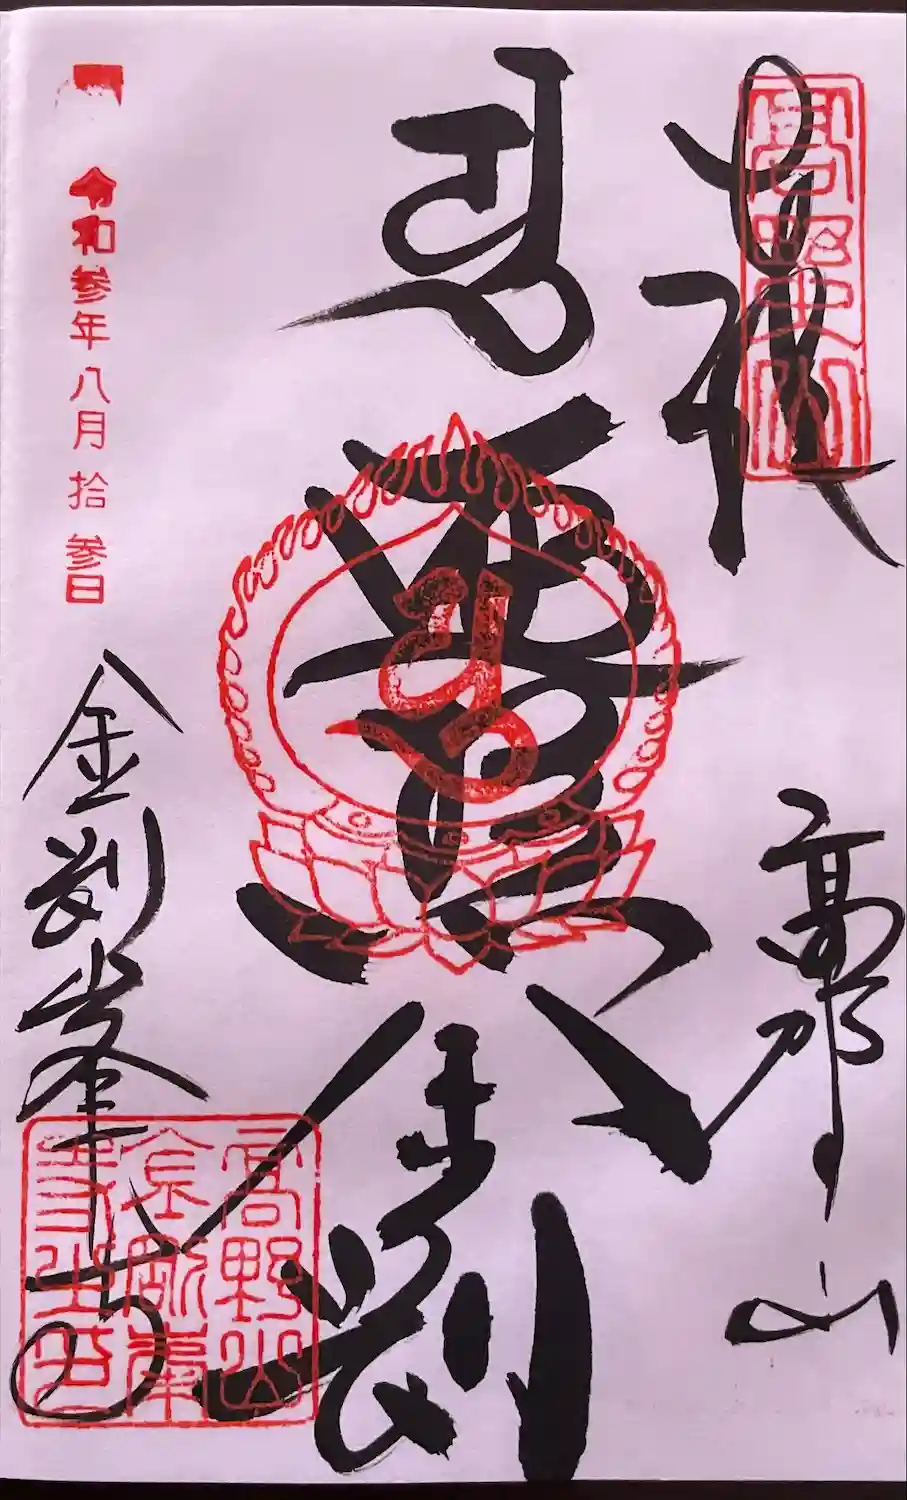 奉拝
高野山
高野山
遍照金剛
令和参年八月拾参日
金剛峯寺
高野山
金剛峯
寺之印